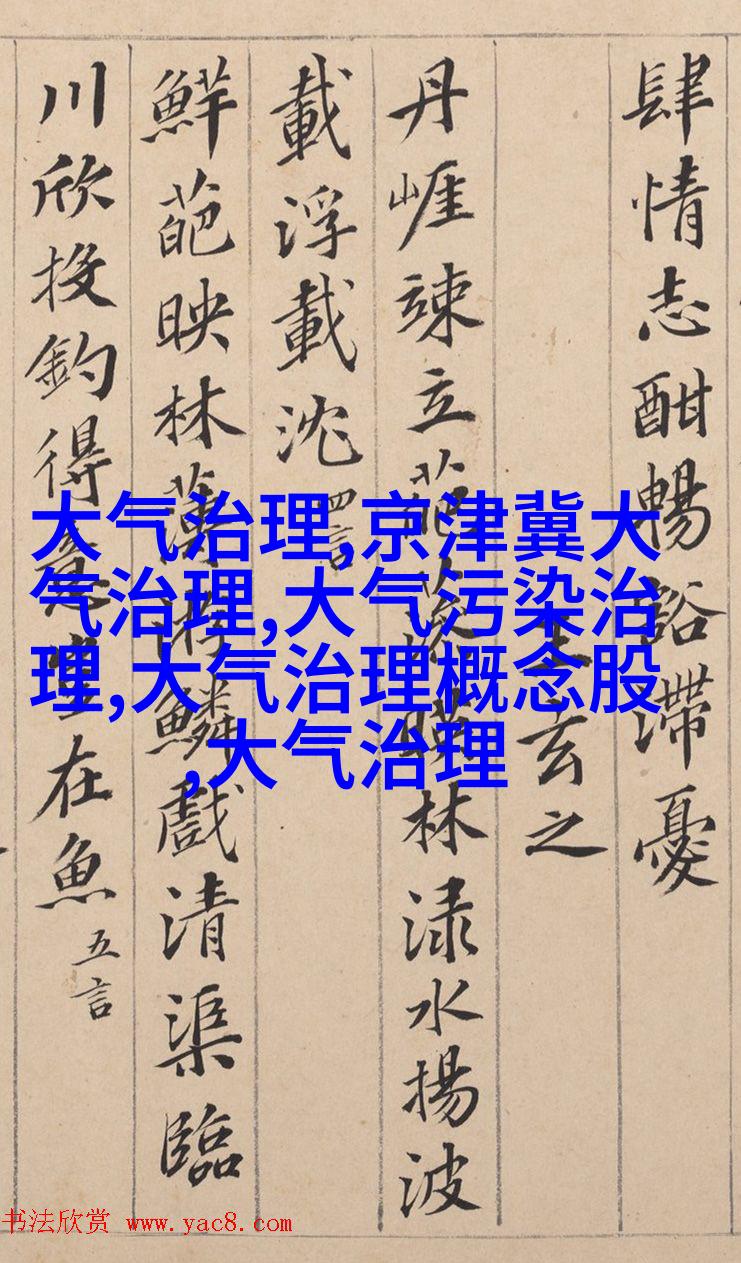 肆情志酣暢豁滯憂
王玄之
丹崕竦立葩藻暎林淥水揚波
載浮載沈 四言
鮮葩映林薄游鱗戲清渠臨
川欣投釣得意豈在魚 五言
大气治理,京津冀大
气治理,大气污染治
理,大气治理概念股
,大气治理
书法欣赏 www.yac8.com